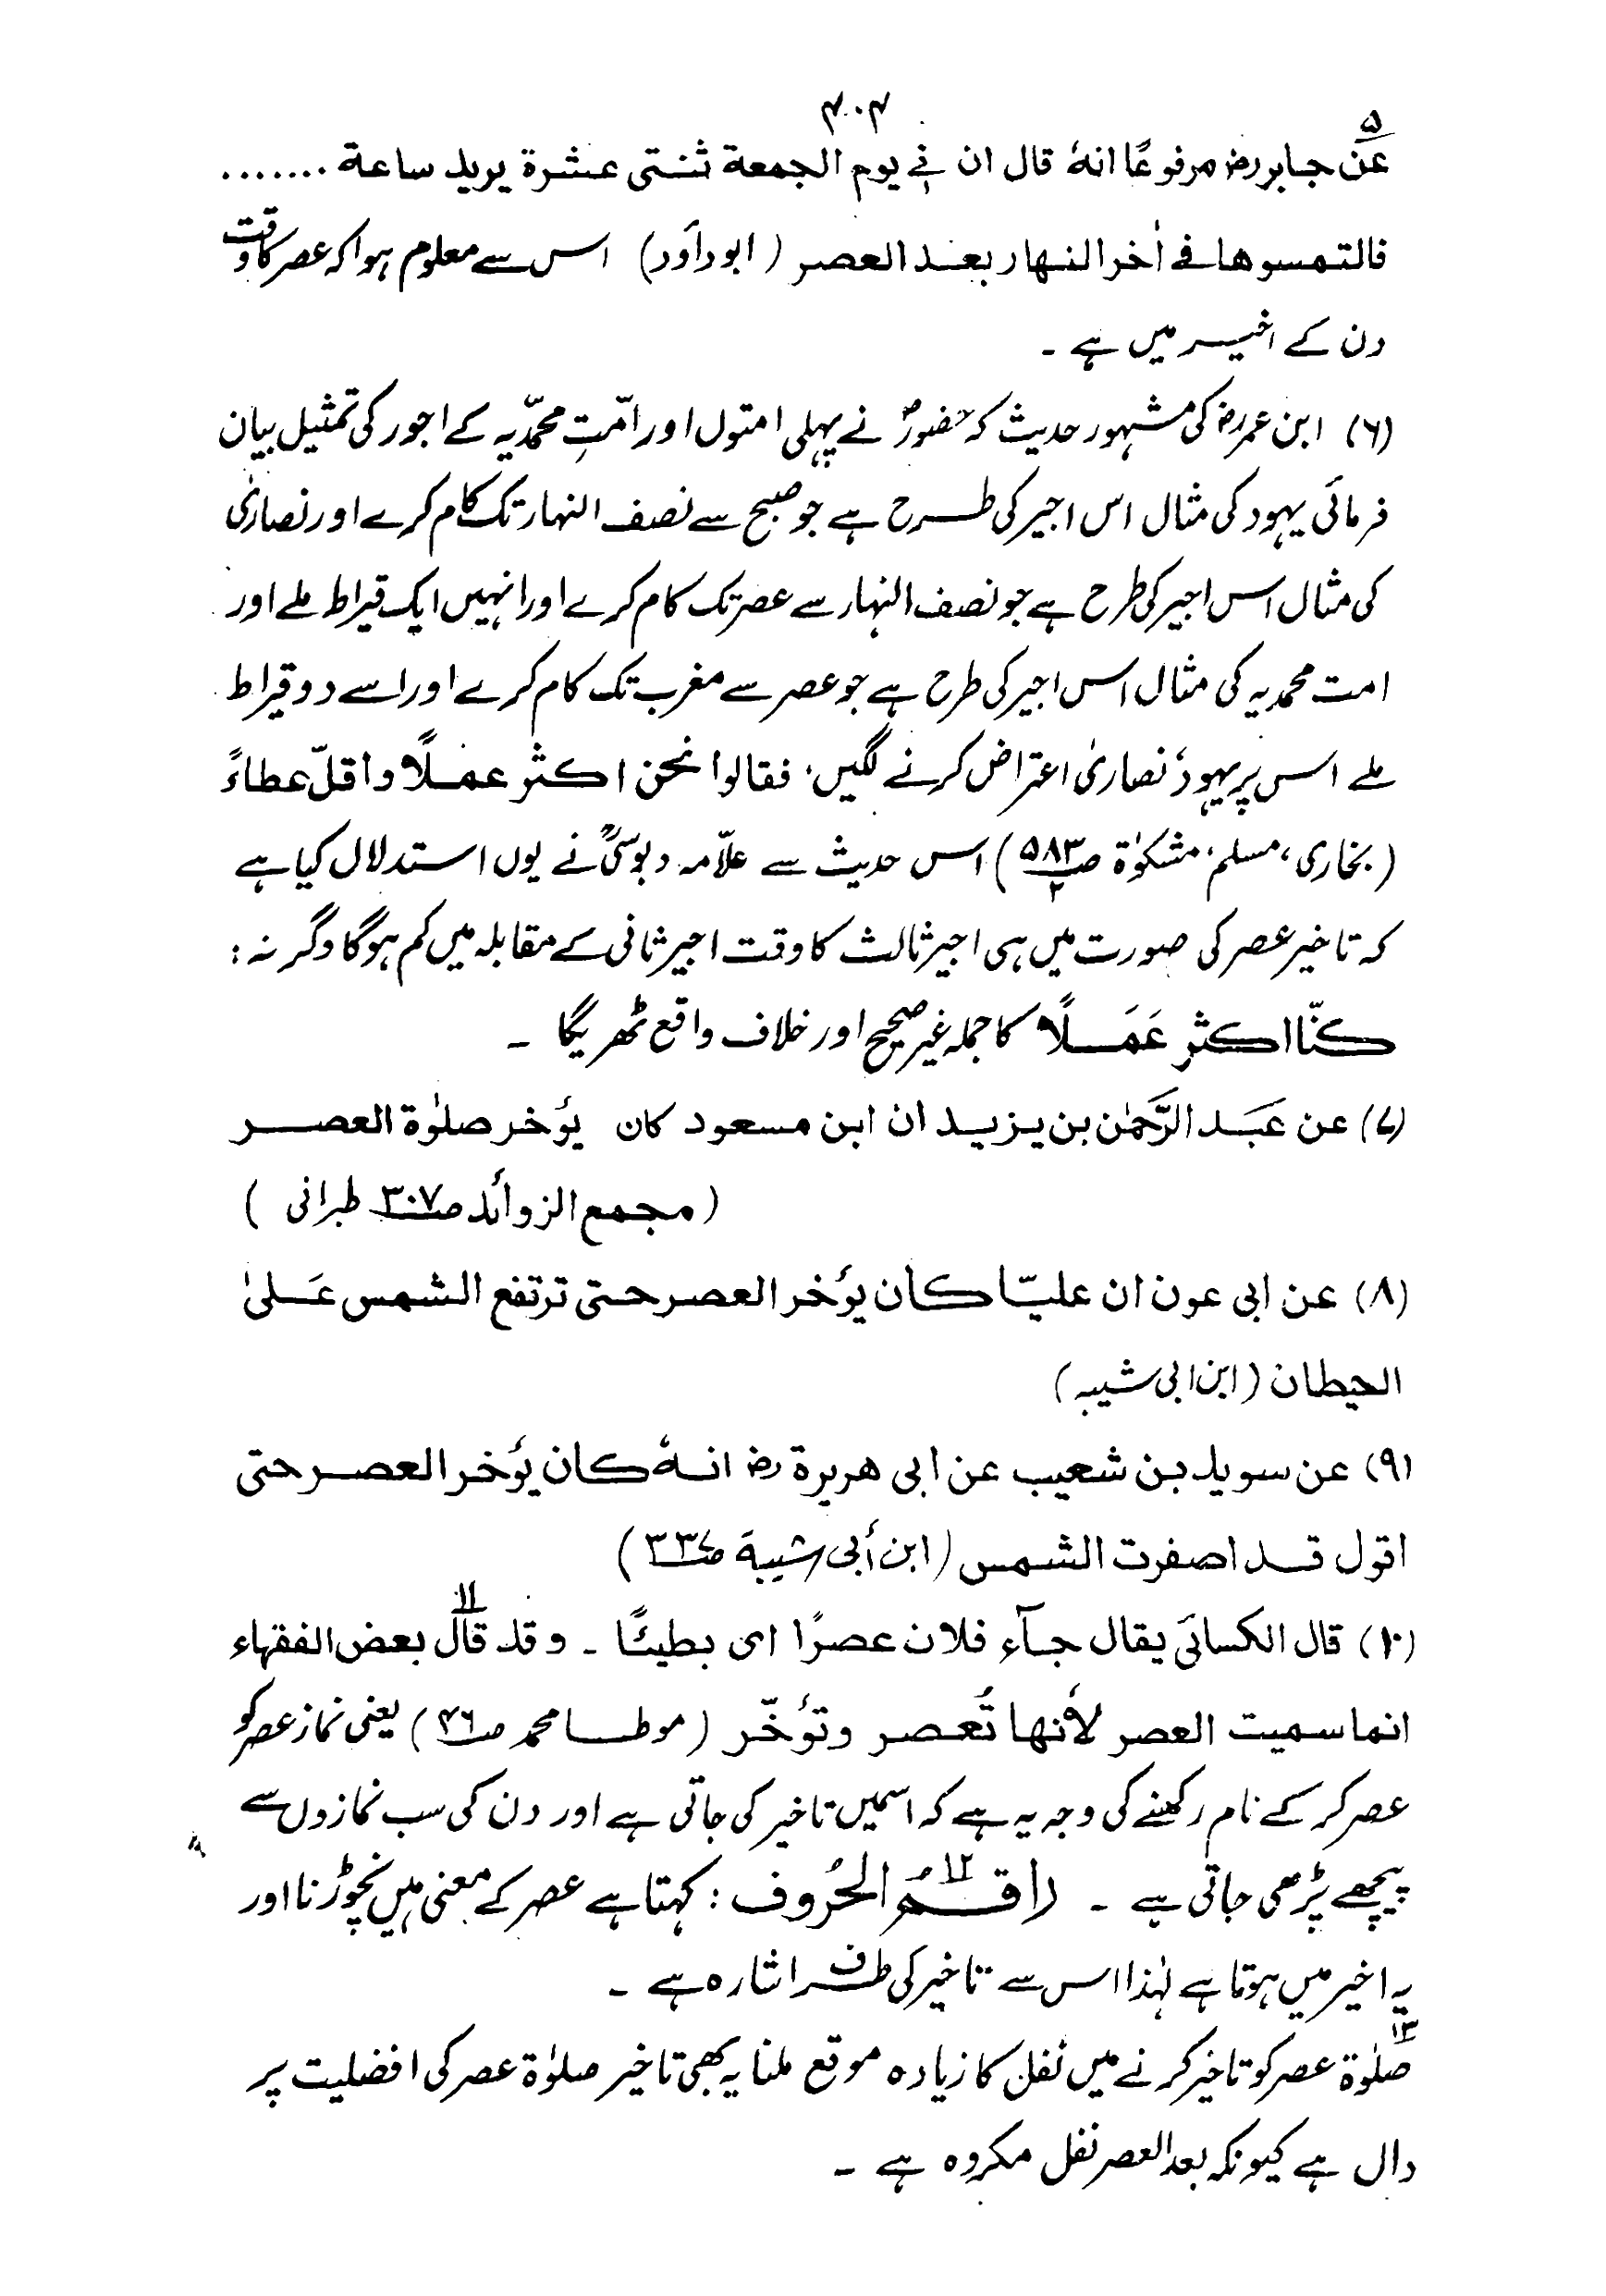 ۴۰۴
۵
عن جابررض مرفوعًا انہٗ قال ان فی یوم الجمعة ثنتی عشرة یرید ساعة .......
فالتمسوھا فی اٰخر النھار بعد العصر (ابوداؤد) اس سے معلوم ہوا کہ عصر کا وقت
دن کے اخیر میں ہے ۔
(۶) ابن عمررض کی مشہور حدیث کہ حضورؐ نے پہلی امتوں اور امّتِ محمّدیہ کے اجور کی تمثیل بیان
فرمائی یہود کی مثال اس اجیر کی طرح ہے جو صبح سے نصف النہار تک کام کرے اور نصاریٰ
کی مثال اس اجیر کی طرح ہے جو نصف النہار سے عصر تک کام کرے اور انہیں ایک قیراط ملے اور
امت محمدیہ کی مثال اس اجیر کی طرح ہے جو عصر سے مغرب تک کام کرے اور اسے دو قیراط
ملے اس پر یہود و نصاریٰ اعتراض کرنے لگیں، فقالوا نحن اکثر عملًا و اقلّ عطاءً
(بخاری، مسلم، مشکوٰة ص۵۸۳/۲) اس حدیث سے علاّمہ دبوسیؒ نے یوں استدلال کیا ہے
کہ تاخیر عصر کی صورت میں ہی اجیر ثالث کا وقت اجیر ثانی کے مقابلہ میں کم ہوگا وگرنہ :
کنّا اکثر عَمَلًا کا جملہ غیر صحیح اور خلاف واقع ٹھریگا ۔
(۷) عن عَبد الرَّحمٰن بن یزید ان ابن مسعود کان یؤخر صلوٰة العصر
(مجمع الزوائد ص۳۰۷ طبرانی )
(۸) عن ابی عون ان علیّا کان یؤخر العصر حتی ترتفع الشمس عَلیٰ
الحیطان (ابن ابی شیبہ)
(۹) عن سوید بن شعیب عن ابی ھریرة رض انہٗ کان یؤخر العصر حتی
اقول قد اصفرت الشمس (ابن أبی شیبة ص۳۳۷)
(۱۰) قال الکسائی یقال جآء فلان عصرًا ای بطیئًا ۔ ۱۱ وقد قال بعض الفقھاء
انما سمیت العصر لأنھا تُعصر وتؤخّر (موطا محمد ص۴۶) یعنی نماز عصر کو
عصر کر کے نام رکھنے کی وجہ یہ ہے کہ اسمیں تاخیر کی جاتی ہے اور دن کی سب نمازوں سے
پیچھے پڑھی جاتی ہے ۔ ۱۲ راقمُ الحُروف : کہتا ہے عصر کے معنی ہیں نچوڑنا اور
یہ اخیر میں ہوتا ہے لہٰذا اس سے تاخیر کی طرف اشارہ ہے ۔
۱۳
صلوٰة عصر کو تاخیر کرنے میں نفل کا زیادہ موقع ملنا یہ بھی تاخیر صلوٰة عصر کی افضلیت پر
دال ہے کیونکہ بعد العصر نفل مکروہ ہے ۔